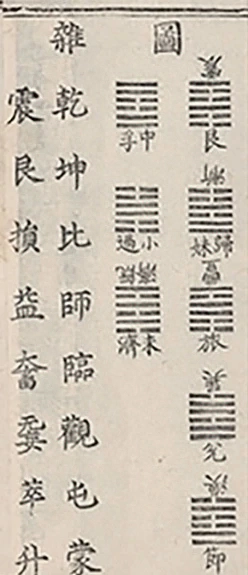 震
艮
漸
歸妹
豐
旅
巽
兌
渙
節
圖
中孚
小過
既濟
未濟
雜
乾坤比師臨觀屯蒙
震艮損益大畜无妄萃升